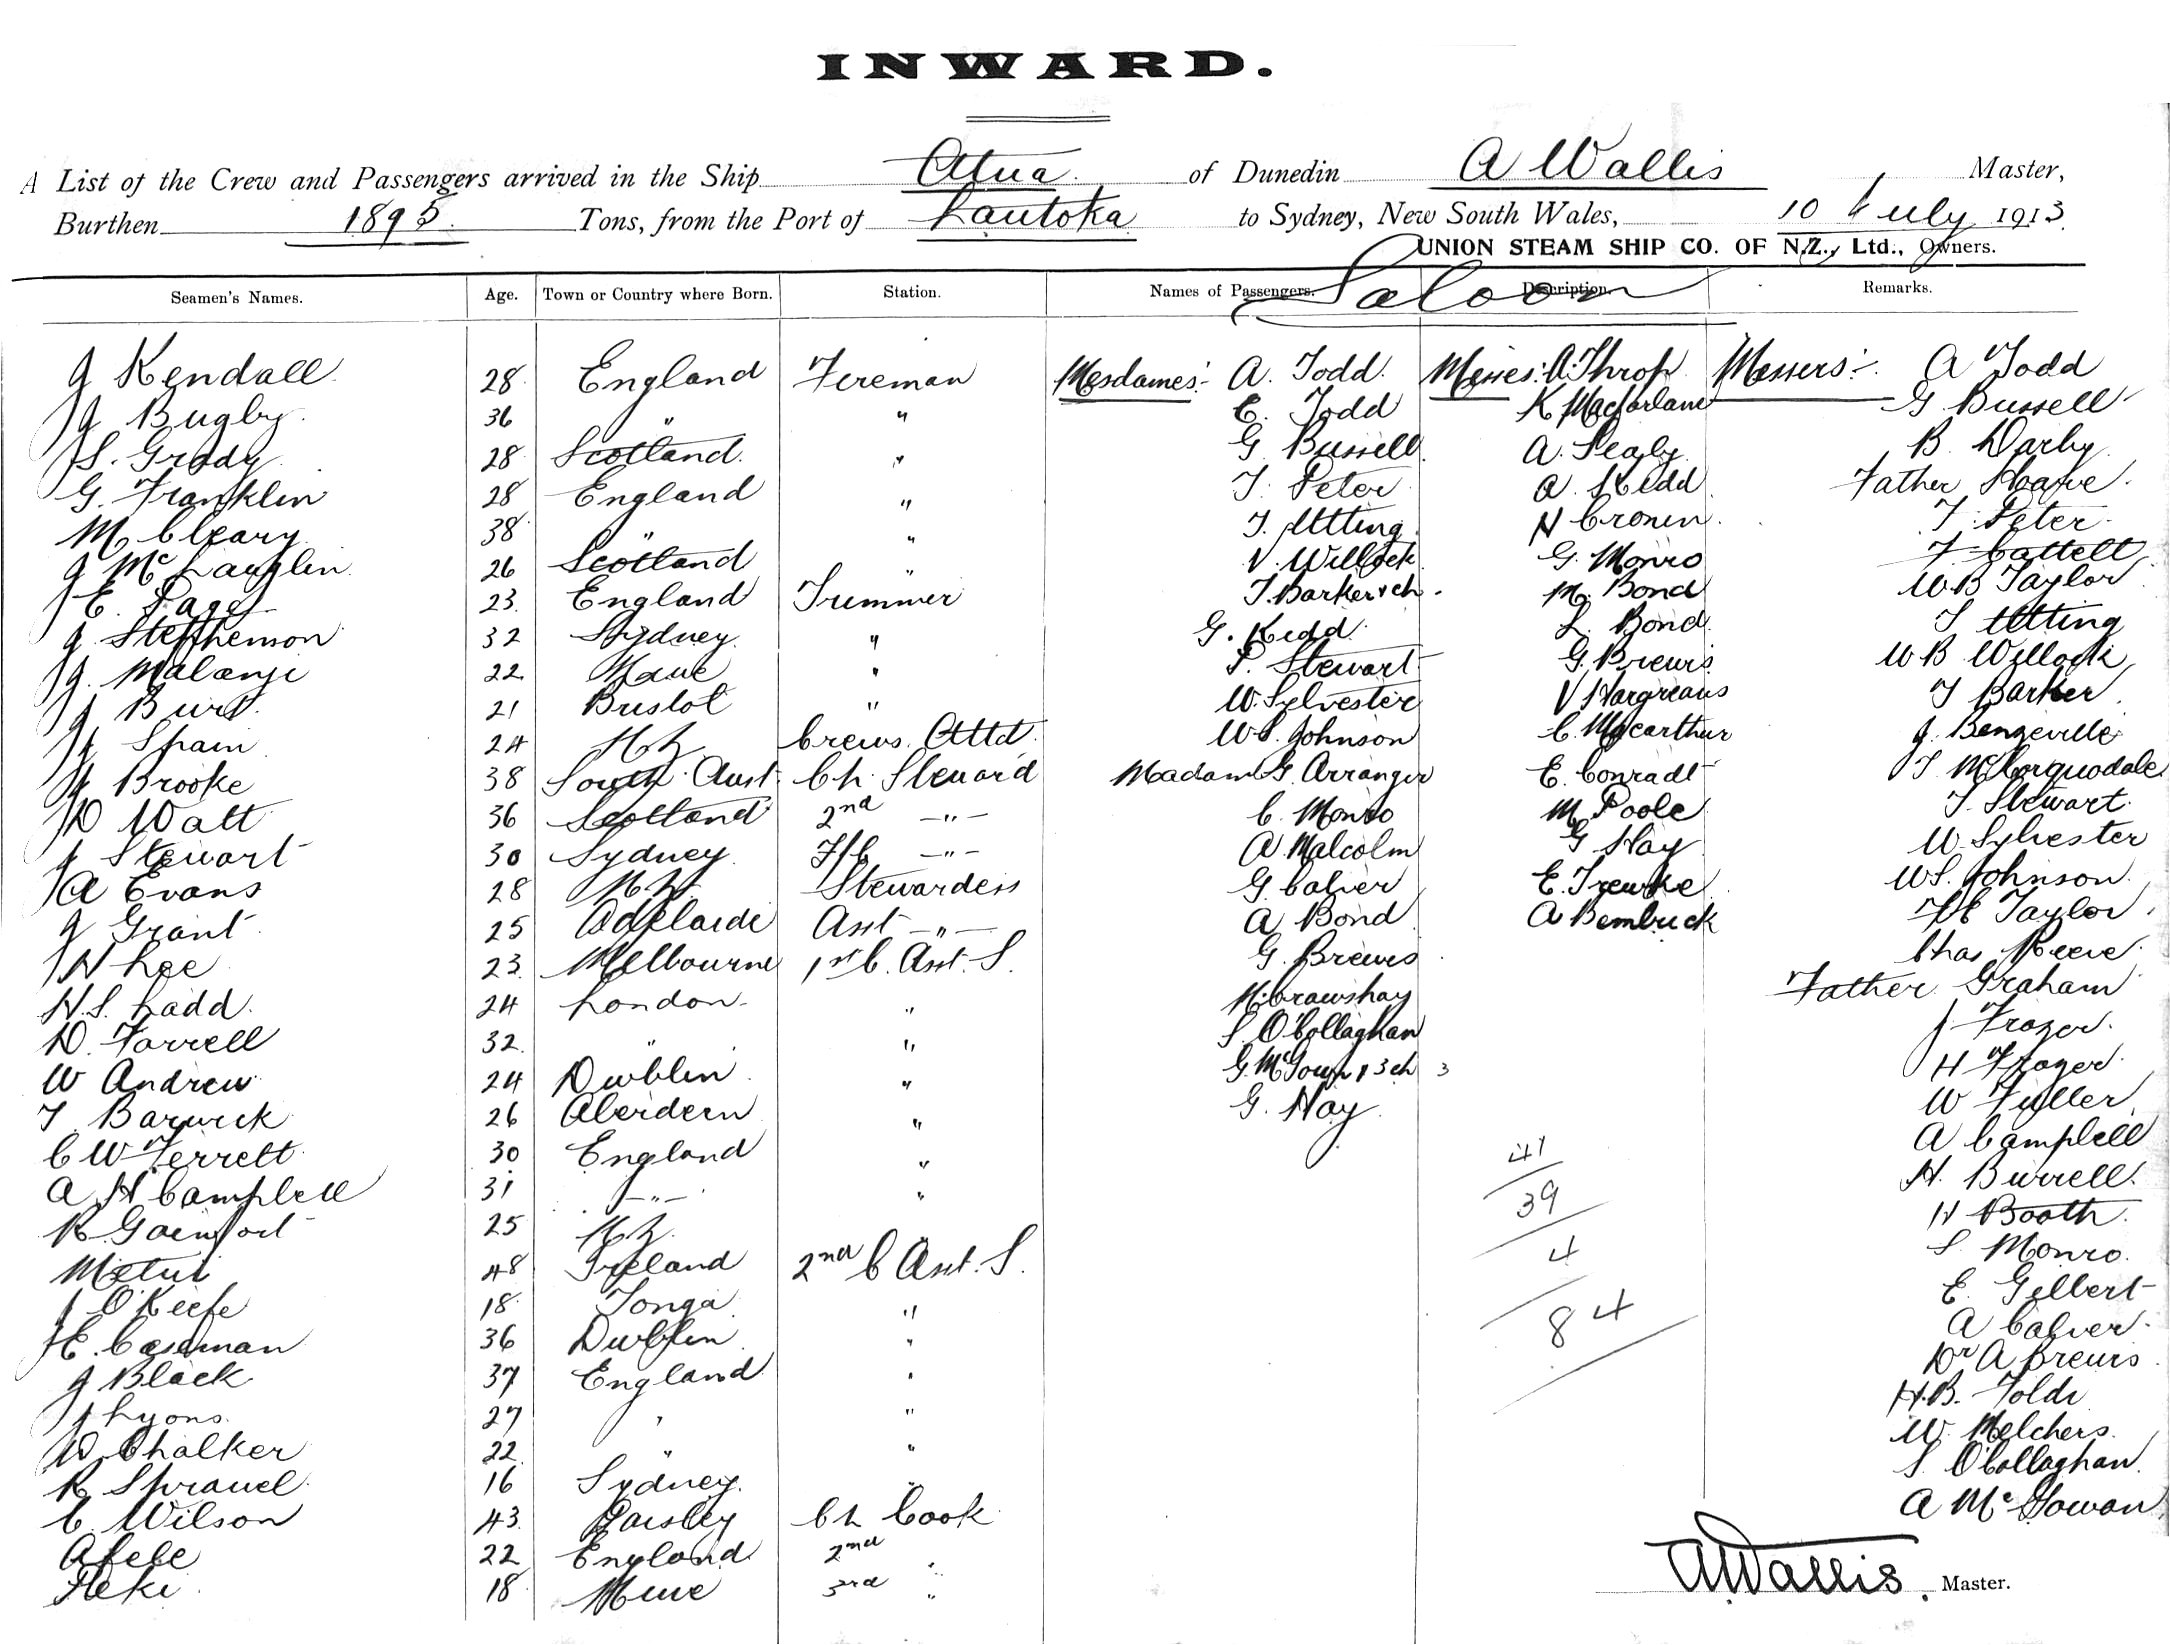 INWARD.
A List of the Crew and Passengers arrived in the Ship Atua. of Dunedin A Wallis Master,
Burthen 1895. Tons, from the Port of Lautoka to Sydney, New South Wales, 10 July 1913.
UNION STEAM SHIP CO. OF N.Z., Ltd., Owners.
Seamen's Names. Age. Town or Country where Born. Station. Names of Passengers. Saloon Description. Remarks.
J Kendall 28 England Fireman Mesdames:- A. Todd Misses: A. Throp Messers:- A Todd
J Bugby 36 " " E. Todd K Macfarlane G Bussell
S. Grady 28 Scotland " G Bussell A. Sealy B. Darby
G. Franklin 28 England " T. Peter A. Kidd Father Hoare
M Cleary 38 " " T. Utting N Cronin T. Peter
J McLauglin 26 Scotland " V. Willock G. Monro T Cattell
E. Page 23 England Trimmer T. Barker & ch. M. Bond W B Taylor
J. Stephenson 32 Sydney " G. Kidd L. Bond T Utting
J. Malanje 22 " P. Stewart G. Brewis W B Willock
J Burt 21 Bristol " W. Sylvester V Hargreaves T Barker
Spain 24 N Z Crews Attd W S. Johnson C. Macarthur J. Bengeville
Brooke 38 South Aust. Ch. Steward Madam G. Arranger E. Conradt T McCorquodale
D Watt 36 Scotland 2nd -"- C. Monro M. Poole T. Stewart
J Stewart 30 Sydney F/C -"- A Malcolm G Hay W. Sylvester
A Evans 28 N Z. Stewardess G Calver E. W S. Johnson
J Grant 25 Adelaide Asst -"- A Bond A Bembrick Taylor
N Lee 23 Melbourne 1st C. Asst. S. G. Brewis Chas Reeve
H. S. Ladd. 24 London " Crawshay Father Graham
D. Farrell 32 " " S O'Collaghan J Frazer
W Andrew 24 Dublin " G. McGown & 3 ch 3 H Frazer
T. Barwick 26 Aberdeen " G. Hay W Fuller
C W Ferrett 30 England " 41 A Campbell
A H Campbell 31 -"- " 39 H. Burrell
R 25 N Z. H Booth
Metui 48 Ireland 2nd C Asst. S. 4 S. Monro
J O'Keefe 18 Tonga " 84 E. Gilbert
E. Caseman 36 Dublin " A Calver
J Black 37 England " Dr A Brewis
J Lyons 27 " " H. B. Foldi
W Chalker 22 " " W. Melchers
R Sprauel 16 Sydney. " S. O'Collaghan
C. Wilson 43 Paisley Ch Cook A McGowan
Afele 22 England 2nd "
Heki 18 3rd "
A Wallis. Master.